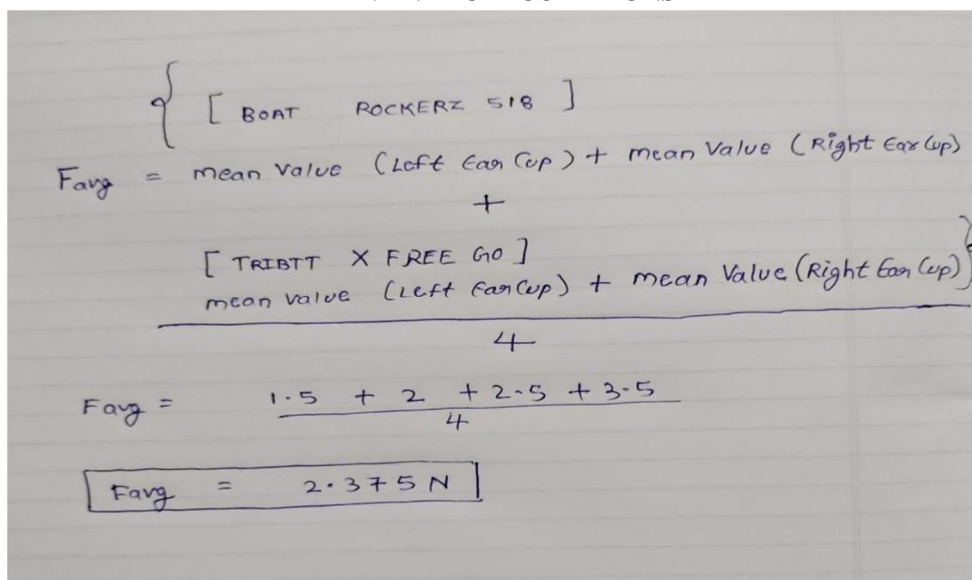 [ BOAT ROCKERZ 518 ]
Favg = mean value (Left Ear Cup) + mean value (Right Ear Cup)
+
[ TRIBTT X FREE GO ]
mean value (Left Ear Cup) + mean value (Right Ear Cup)
4
Favg = 1.5 + 2 + 2.5 + 3.5
4
Favg = 2.375 N